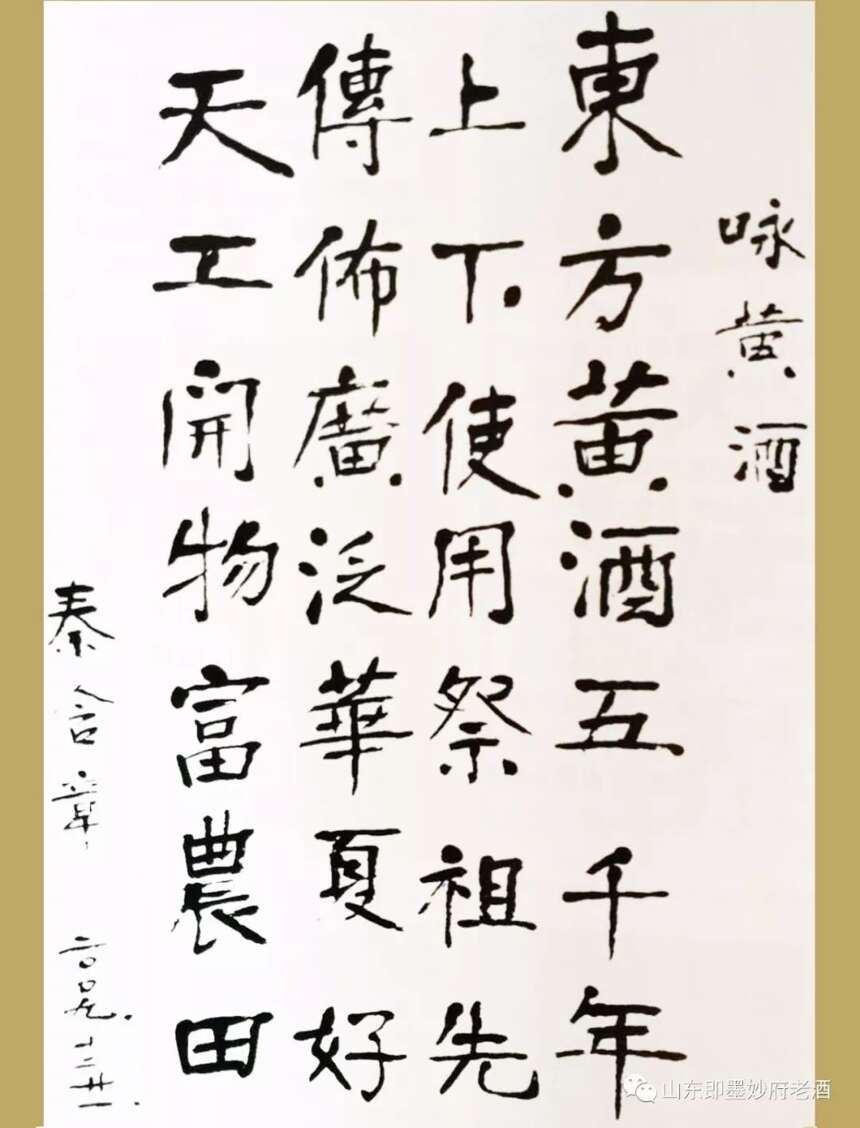 咏黄酒
東方黄酒五千年
上下使用祭祖先
傳佈廣泛華夏好
天工開物富農田
秦含章
二〇〇九.十二.廿一.
山东即墨妙府老酒